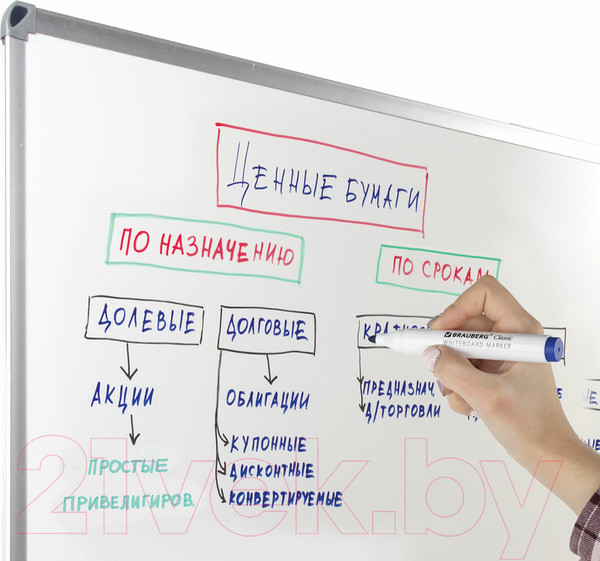 ЦЕННЫЕ БУМАГИ
ПО НАЗНАЧЕНИЮ
ПО СРОКАМ
ДОЛЕВЫЕ
ДОЛГОВЫЕ
BRAUBERG Classic
WHITEBOARD MARKER
АКЦИИ
ОБЛИГАЦИИ
ПРЕДНАЗНАЧ
Д/ТОРГОВЛИ
ПРОСТЫЕ
ПРИВЕЛИГИРОВ.
КУПОННЫЕ
ДИСКОНТНЫЕ
КОНВЕРТИРУЕМЫЕ
21vek.by